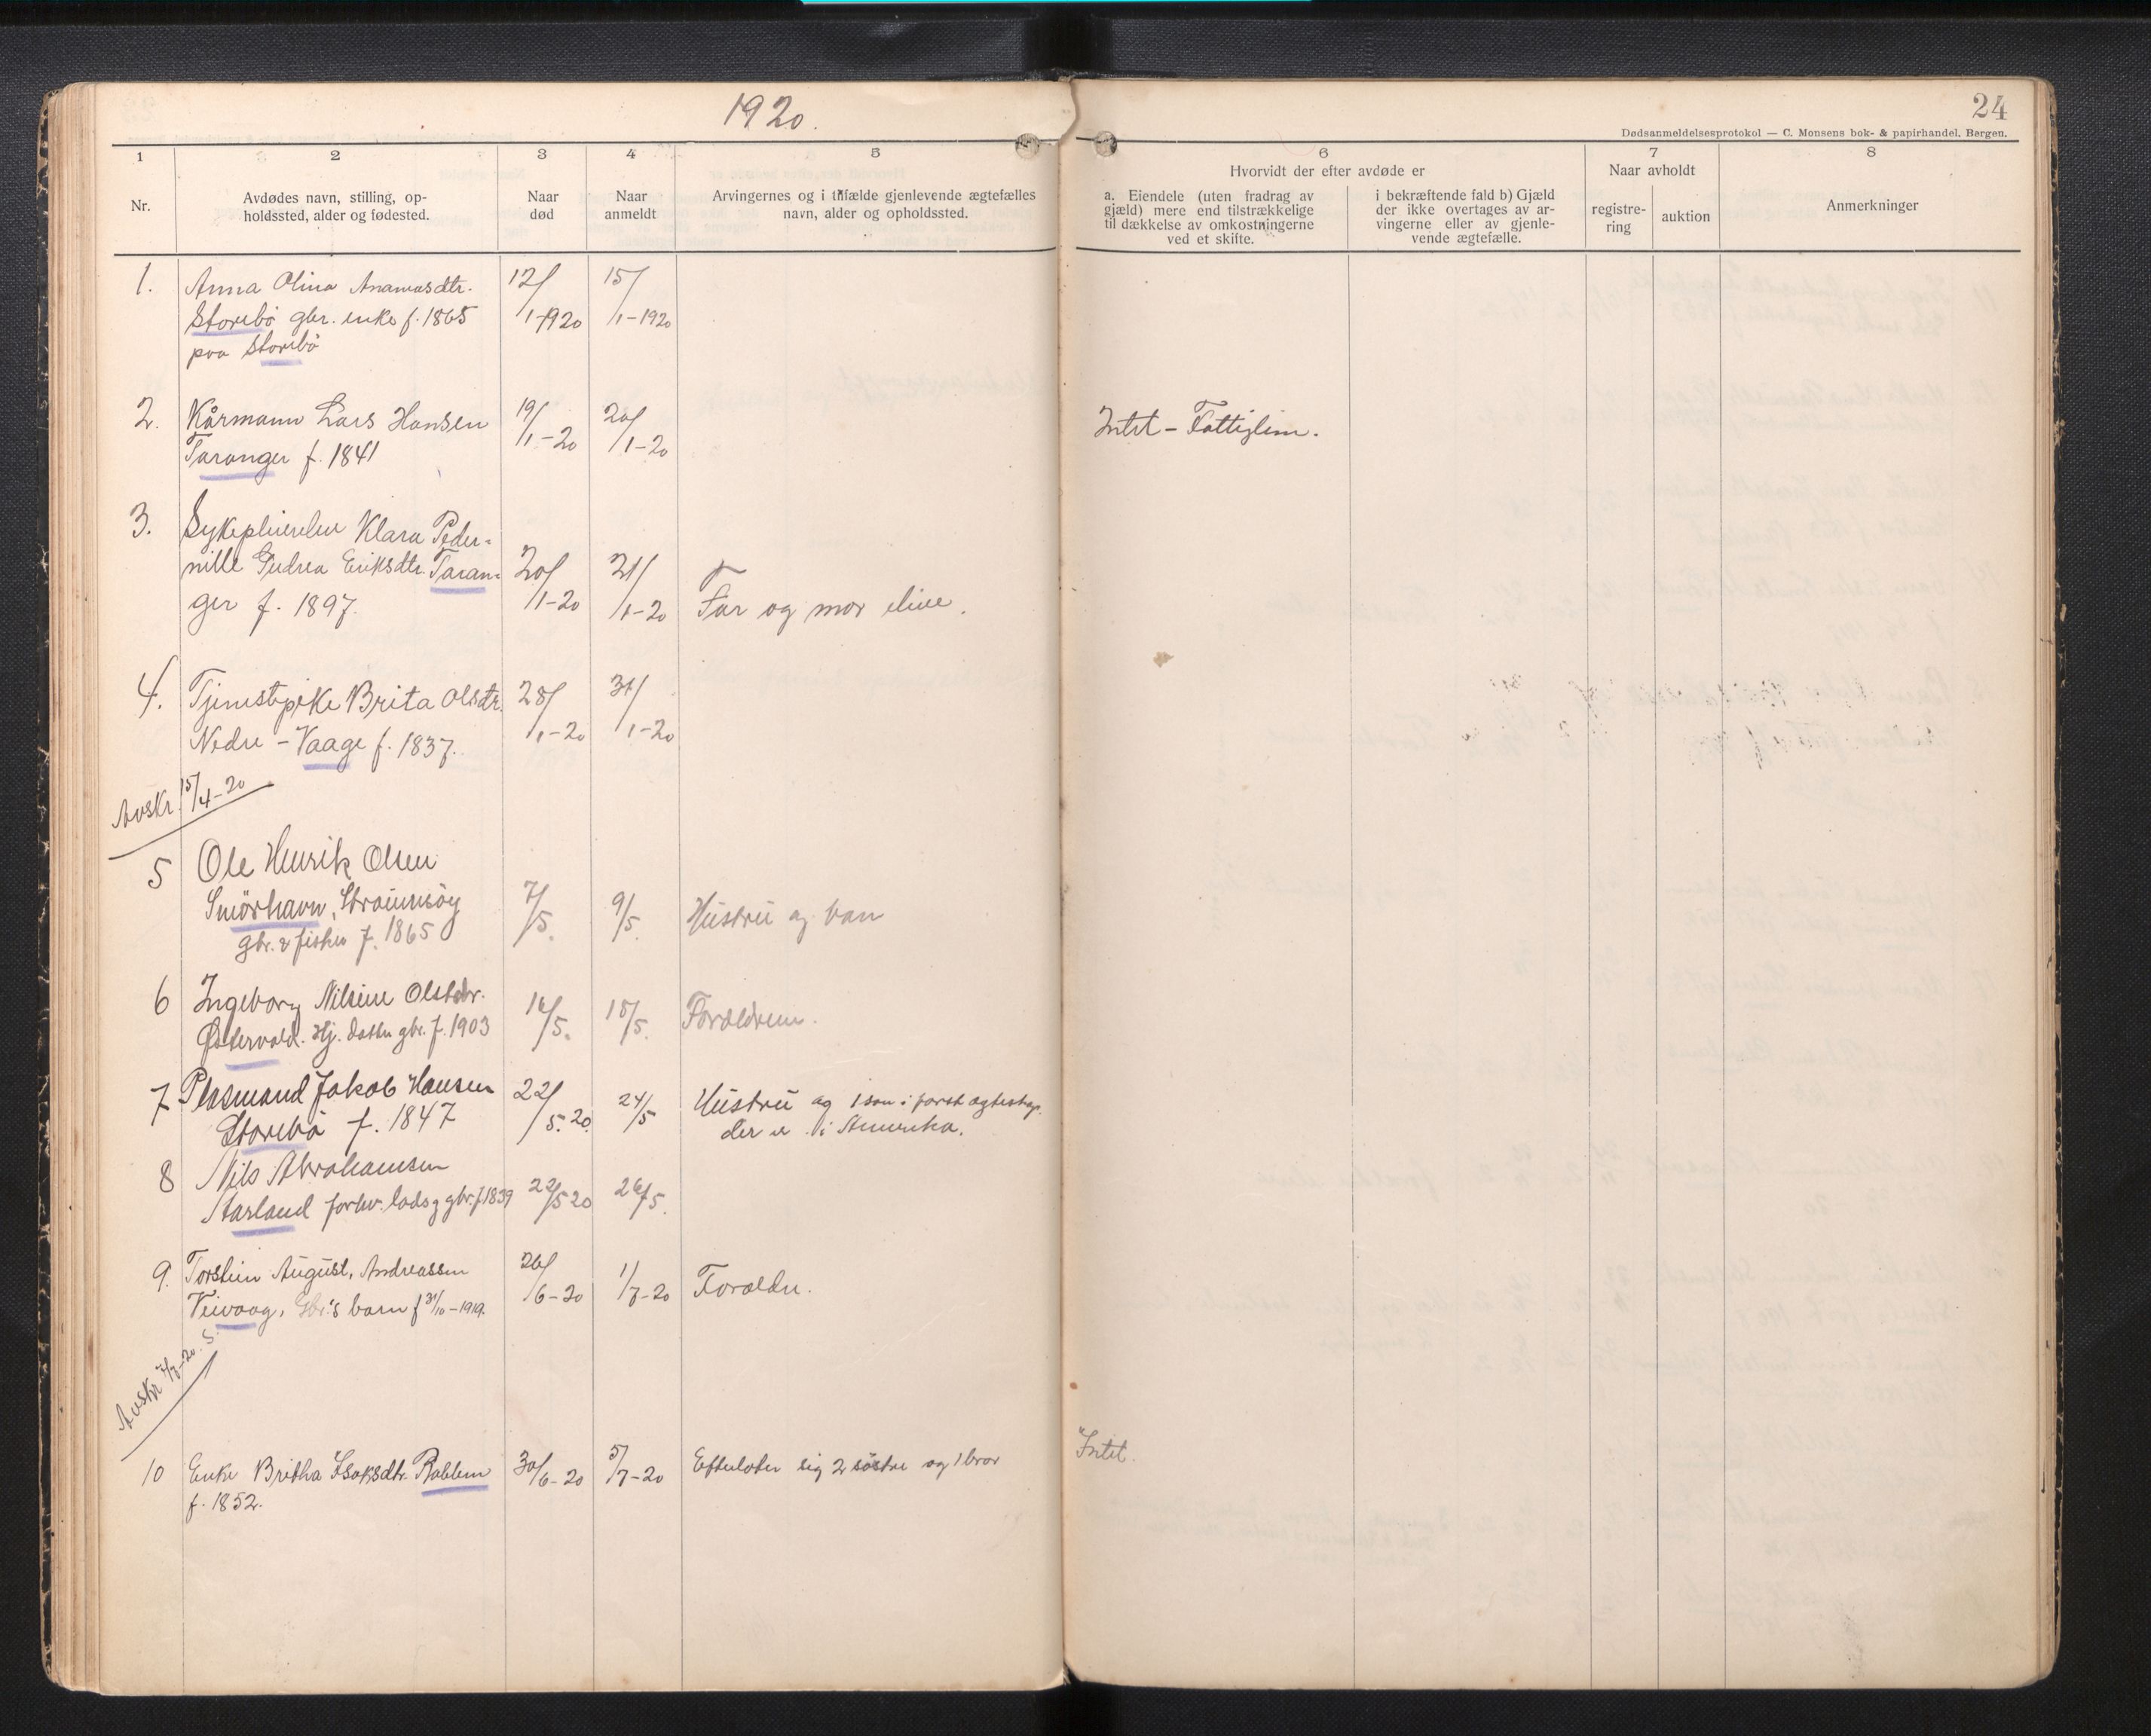 1920.
24
Dødsanmeldelsesprotokol — C. Monsens bok- & papirhandel. Bergen.
1 2 3 4 5 6 7 8
Nr.
Avdødes navn, stilling, op-
holdssted, alder og fødested.
Naar
død
Naar
anmeldt
Arvingernes og i tilfælde gjenlevende ægtefælles
navn, alder og opholdssted.
Hvorvidt der efter avdøde er
a. Eiendele (uten fradrag av
gjæld) mere end tilstrækkelige
til dækkelse av omkostningerne
ved et skifte.
i bekræftende fald b) Gjæld
der ikke overtages av ar-
vingerne eller av gjenle-
vende ægtefælle.
Naar avholdt
registre-
ring
auktion
Anmerkninger
1. Anna Olina dtr. 12/ 15/
Storebö gbr. enke f. 1865 1-1920 1-1920
paa Storebö
2. Kårmann Lars Hansen 19/1-20 20/1-20 Intet - Fattiglem.
Taranger f. 1841
3. Klara Peder-
nille Eriksdtr. Taran- 20/ 21/
ger f. 1897. 1-20 1-20 Far og mor ilive.
4. Tjenestepike Brita Olsdtr. 28/ 31/
Nedre - Vaage f. 1837. 1-20 1-20
Avskr. 15/4-20
5 Ole Henrik Olsen
Smörhavn, 7/5. 9/5. Hustru og barn
gbr. & fisker f. 1865
6 Ingeborg Nilsine Olsdtr. 16/5. 18/5. Forældrene.
Østervold. Hj. datter gbr. f. 1903
7 Plasmand Jakob Hansen 22/5.20. 24/5 Hustru og 1 søn i første ægteskap
Storebö f. 1847 der er i Amerika.
8 Nils Abrahamsen
forhv. lods og gbr. f. 1839 22/5 20 26/5.
9. Torstein August, Andreassen 26/6-20 1/7-20 Forældre.
Veivaag, Gbr.'s barn f 31/10-1919.
Avskr 7/7-20. S.
10 Enke Britha Isaksdtr. Rabben 30/6-20 5/7-20 Efterlater sig 2 søstre og 1 bror Intet.
f. 1852.